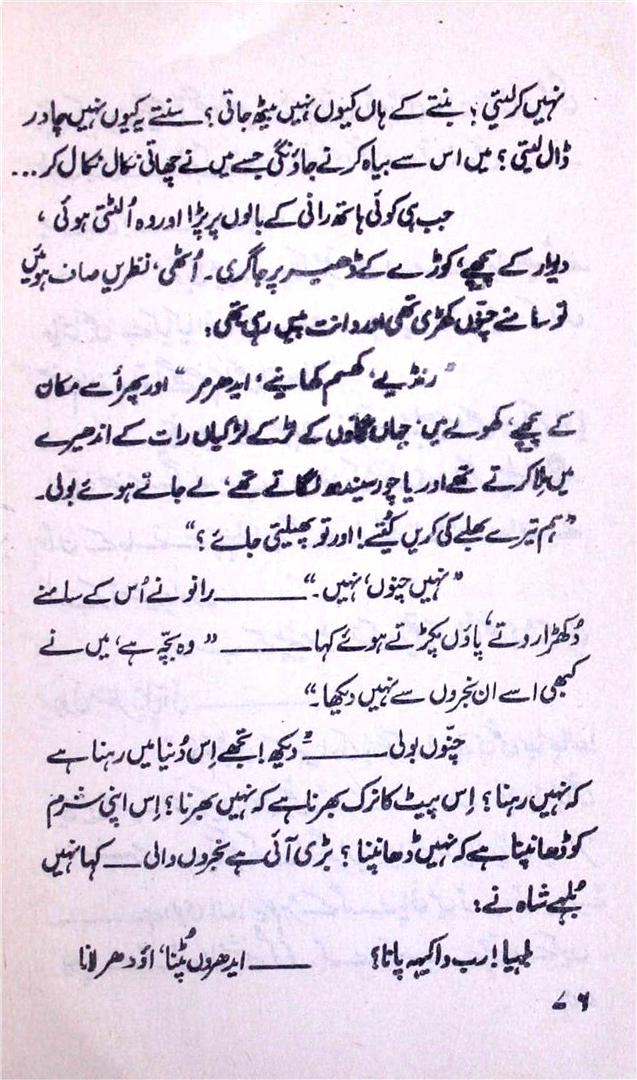 نہیں کرلیتی؟ بنتے کے ہاں کیوں نہیں بیٹھ جاتی؟ سنتے پہ کیوں نہیں چادر
ڈال لیتی؟ میں اس سے بیاہ کرنے جاؤنگی جسے میں نے چھاتی نکال نکال کر...
جب ہی کوئی ہاتھ رانی کے بالوں پر پڑا اور وہ اُلٹتی ہوئی،
دیوار کے پیچھے، کوڑے کے ڈھیر پر جاگری۔ اُٹھی، نظریں صاف ہوئیں
تو سامنے چنّوں کھڑی تھی اور دانت پیس رہی تھی؛
"رنڈیے، کھسم کھانیے، ایدھر مر" اور پھر اُسے مکان
کے پیچھے، کھولے میں، جہاں گانوں کے لڑکے لڑکیاں رات کے اندھیرے
میں ملا کرتے تھے اور یا چور سیندھ لگاتے تھے، لے جاتے ہوئے بولی۔
"ہم تیرے بھلے کی کریں کُتّیے! اور تو پھیلتی جائے؟"
"نہیں چنوں، نہیں۔" ــــــــ رانو نے اُس کے سامنے
دُکھڑا روتے، پاؤں پکڑتے ہوئے کہا ــــــــ "وہ بچّہ ہے، میں نے
کبھی اسے ان نجروں سے نہیں دیکھا۔"
چنّوں بولی ــــــــ "دیکھ! تجھے اِس دُنیا میں رہنا ہے
کہ نہیں رہنا؟ اِس پیٹ کا نرک بھرنا ہے کہ نہیں بھرنا؟ اِس اپنی شرم
کو ڈھانپنا ہے کہ نہیں ڈھانپنا؟ بڑی آئی ہے نجروں والی ــــ کہا نہیں
بُلہے شاہ نے؛
بلہیا! رب دا کیہہ پانا؟ ــــــــ ایدھروں پُٹنا، اؤدھر لانا
۷۶